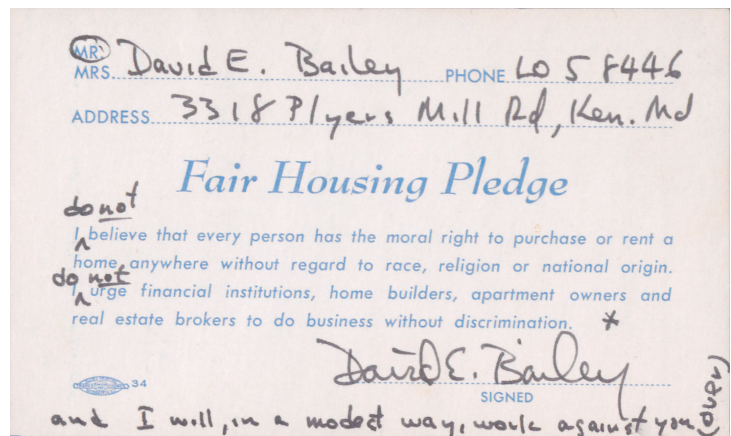 MR
MRS. David E. Bailey PHONE LO 5 8446
ADDRESS 3318 Plyers Mill Rd, Ken. Md
Fair Housing Pledge
do not
I ^ believe that every person has the moral right to purchase or rent a
home anywhere without regard to race, religion or national origin.
do not
I ^ urge financial institutions, home builders, apartment owners and
real estate brokers to do business without discrimination. *
David E. Bailey
34
SIGNED
and I will, in a modest way, work against you (over)